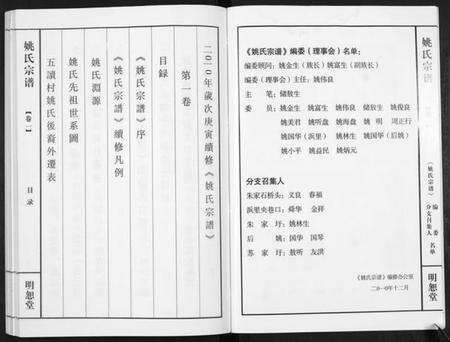 《姚氏宗谱》编委（理事会）名单：
编委顾问：姚金生（族长）姚富生（副族长）
编委（理事会）主任：姚伟良
主　笔：储放生
委　员：姚金生　姚富生　姚伟良　储放生　姚俊良
姚美君　姚听盘　姚海盘　姚　明　周正行
姚国华（浜里）　姚林生　姚国华（后姚）
姚小平　姚益民　姚炳元
分支召集人
朱家石桥头：文良　春福
浜里夹巷口：舜华　金祥
朱　家　圩：姚林生
后　　　姚：国华　国琴
苏　家　圩：敖听　友洪
《姚氏宗谱》编修办公室
二〇一〇年十二月
姚氏宗谱
《姚氏宗谱》
编委
分支召集人
名单
明恕堂
二〇一〇年歲次庚寅續修《姚氏宗譜》
第一卷
目録
《姚氏宗譜》序
《姚氏宗譜》續修凡例
姚氏淵源
姚氏先祖世系圖
五讀村姚氏後裔外遷表
姚氏宗谱
【卷一】
目录
明恕堂